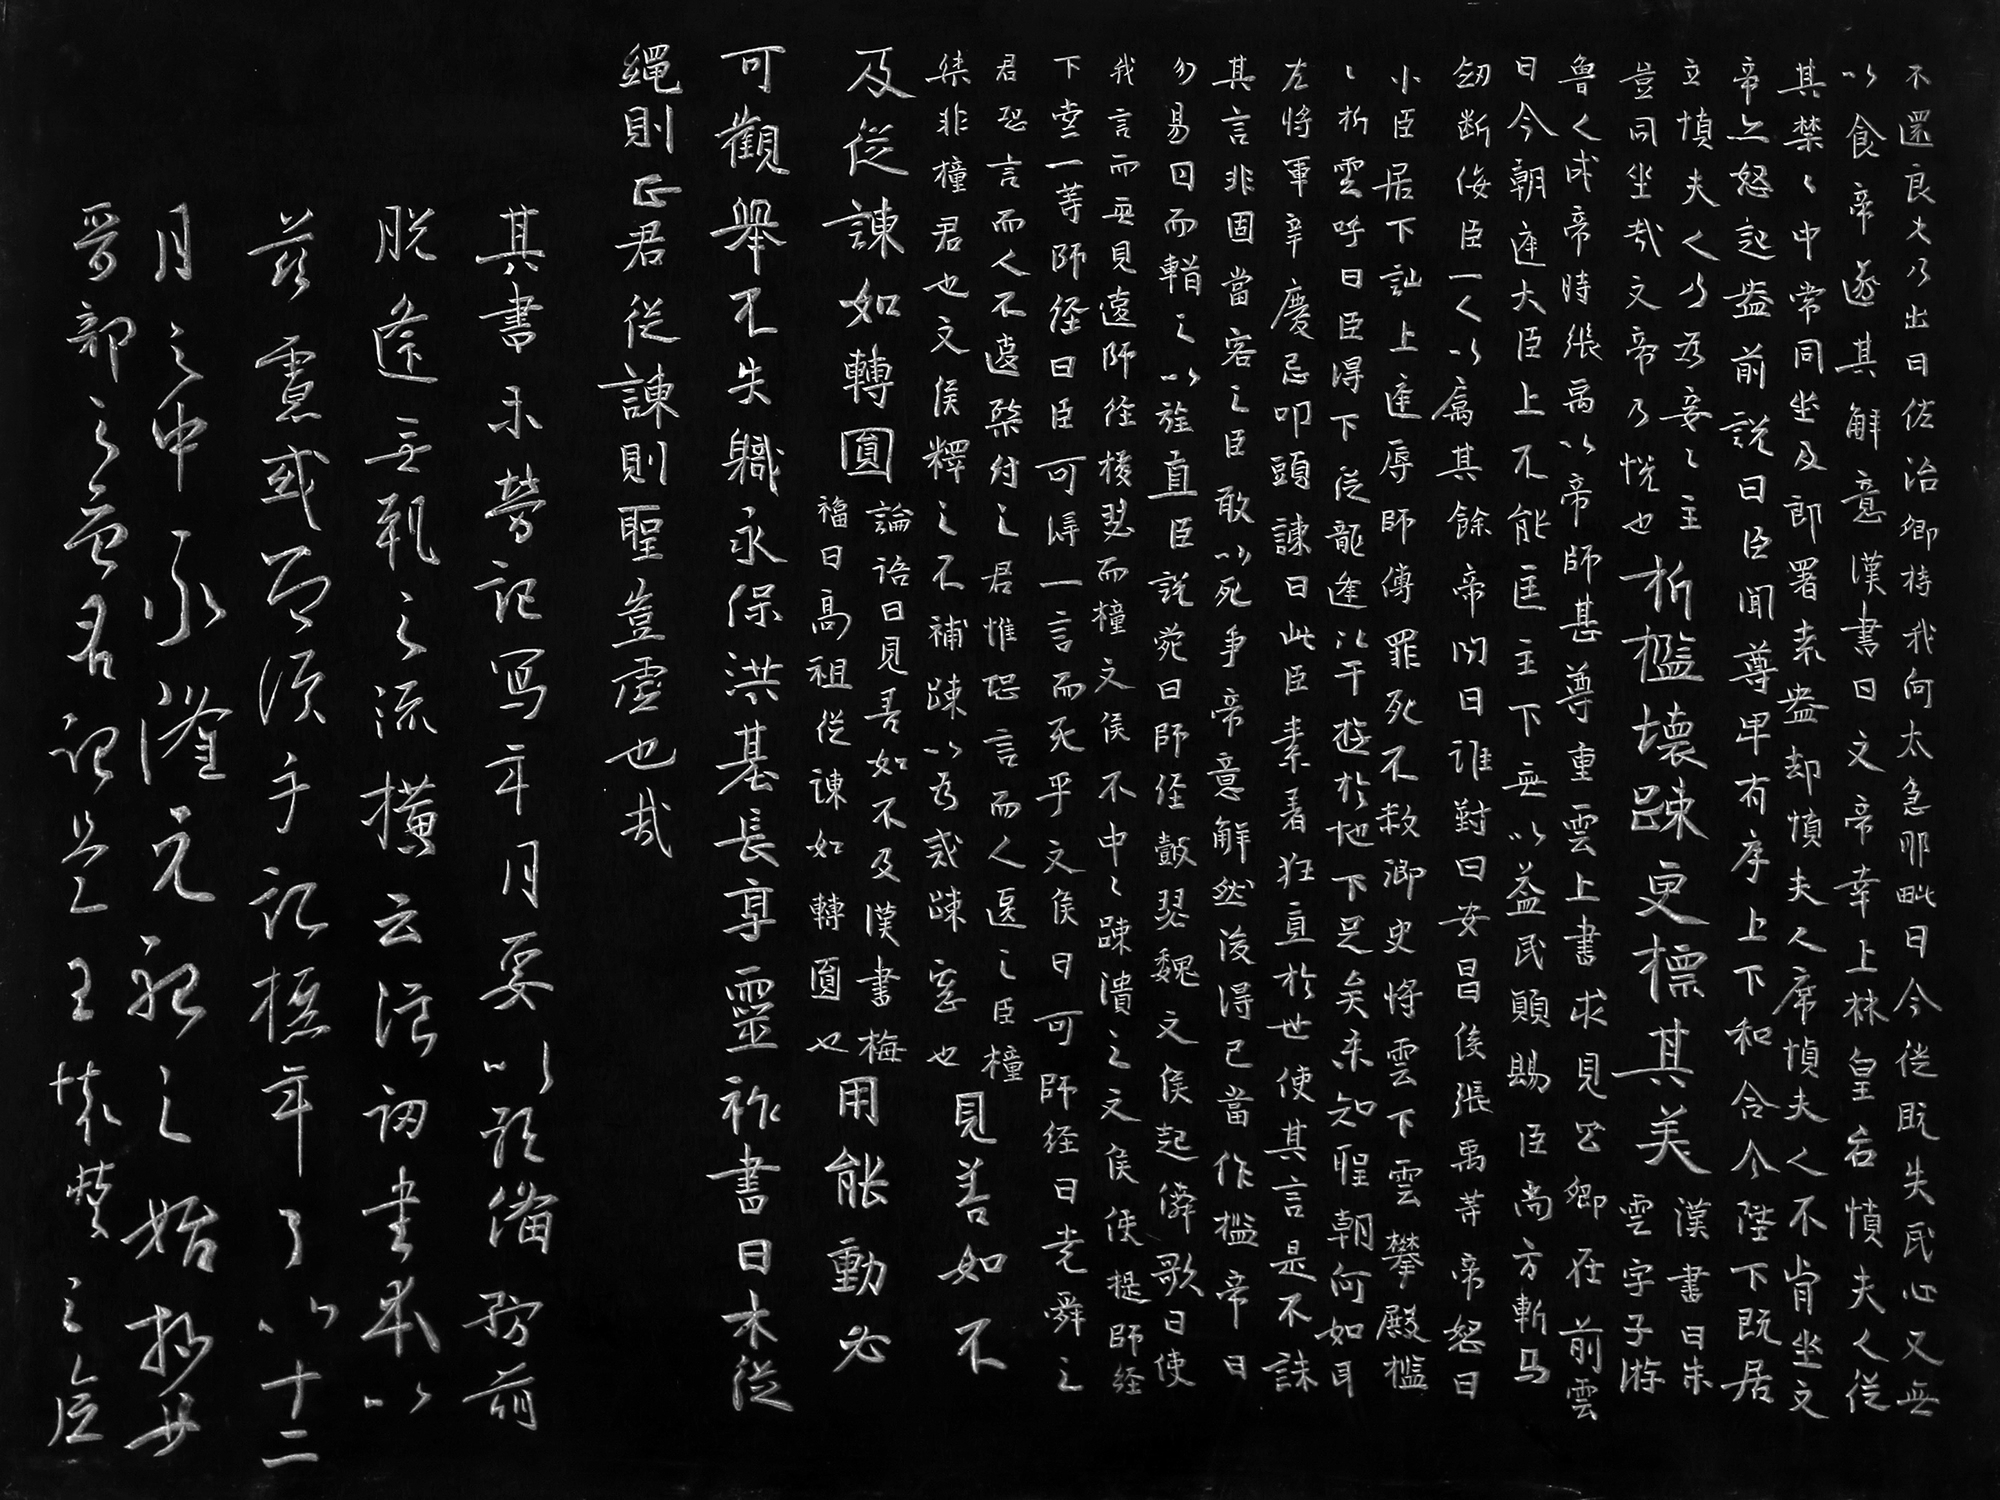 不還良久乃出曰佐治卿持我何太急耶毗曰今從既失民心又無
以食帝遂其解意漢書曰文帝幸上林皇后慎夫人從
其禁〻中常同坐及郎署素盎却慎夫人席慎夫人不肯坐文
帝亦怒起盎前說曰臣聞尊卑有序上下和合今陛下既居
立慎夫人乃為妾〻主
豈同坐哉文帝乃悅也
折檻壞疎更標其美
漢書曰朱
雲字子游
魯人成帝時張禹以帝師甚尊重雲上書求見公卿在前雲
曰今朝廷大臣上不能匡主下無以益民願賜臣尚方斬馬
劒斷侫臣一人以厲其餘帝問曰誰對曰安昌侯張禹等帝怒曰
小臣居下訕上廷辱師傅罪死不赦御史將雲下雲攀殿檻
〻折雲呼曰臣得下從龍逢比干遊於地下足矣未知聖朝何如耳
左將軍辛慶忌叩頭諫曰此臣素著狂直於世使其言是不誅
其言非固當容之臣敢以死爭帝意解然後得已當作檻帝曰
勿易因而輯之以旌直臣說菀曰師經鼓瑟魏文侯起儛歌曰使
我言而無見違師經援瑟而橦文侯不中〻疎潰之文侯使提師経
下堂一等師経曰臣可得一言而死乎文侯曰可師経曰堯舜之
君恐言而人不違桀紂之君惟恐言而人違之臣橦
桀非橦君也文侯釋之不補疎以為戒疎窓也
見善如不
及從諫如轉圓
論語曰見善如不及漢書梅
福曰高祖從諫如轉圓也
用能動必
可觀舉不失職永保洪基長享靈祚書曰木從
繩則正君從諫則聖豈虛也哉
其書未勞記写年月要以所備努前
脫逢無軌之流横云注初書本以
茲慮或為須手記標年了以十二
月之中承隆元祀之始抄女
晉郭之玄名記是王其贊之應